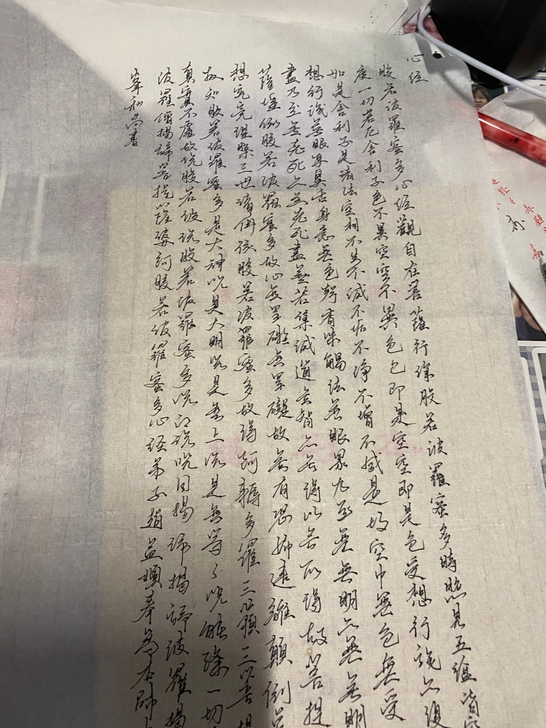 心经
般若波羅蜜多心经觀自在菩薩行深般若波羅蜜多時照見五蕴皆空
度一切若厄舍利子色不異空空不異色色即是空空即是色受想行識亦復
如是舍利子是诸法空相不生不滅不垢不淨不增不減是故空中無色無受
想行識無眼耳鼻舌身意無色聲香味觸法無眼界乃至無無明亦無無明
盡乃至無老死亦無老死盡無苦集滅道無智亦無得以無所得故菩提
薩埵依般若波羅蜜多故心無罣礙無罣礙故無有恐怖遠離顛倒
想究竟涅槃三世诸佛依般若波羅蜜多故得阿耨多羅三藐三菩提
故知般若波羅蜜多是大神咒是大明咒是無上咒是無等々咒能除一切
真實不虛故説般若波羅蜜多咒即説咒曰揭谛揭谛波羅揭
波羅僧揭谛菩提薩婆訶般若波羅蜜多心经弟子趙孟頫奉為本師
峰和尚書